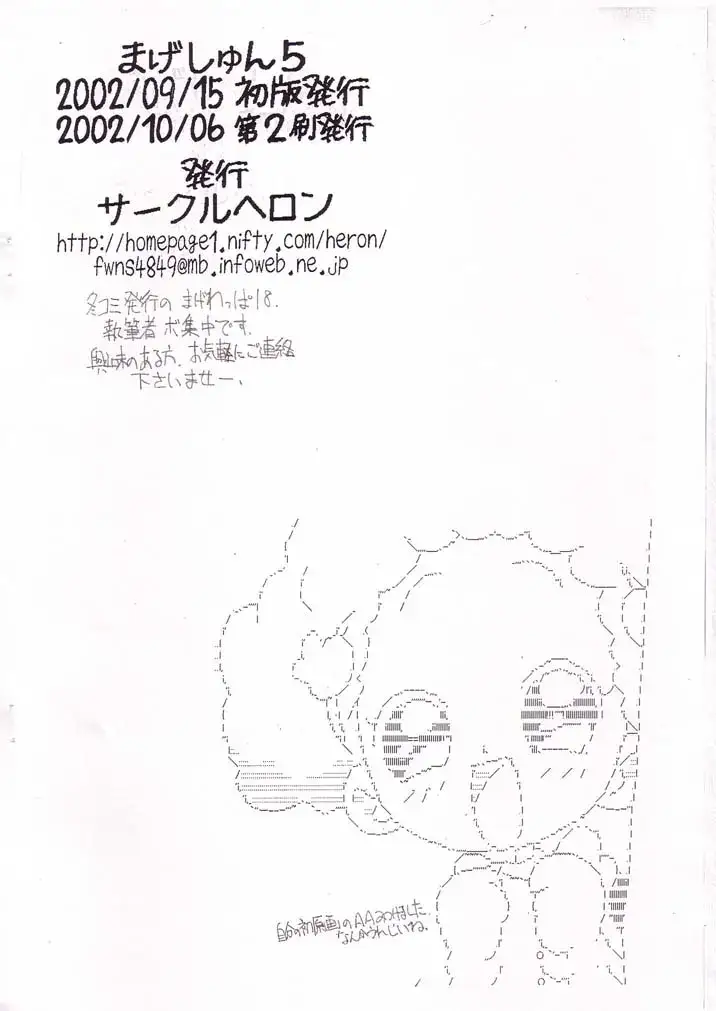 まげしゅん5
2002/09/15 初版発行
2002/10/06 第2刷発行
発行
サークルヘロン
http://homepage1.nifty.com/heron/
fwns4849@mb.infoweb.ne.jp
冬コミ発行の まげわっぱ18.
執筆者 ボ集中です.
興味のある方. お気軽にご連絡
下さいませー.
自分の初原画のAAみつけました.
なんかうれしいね.